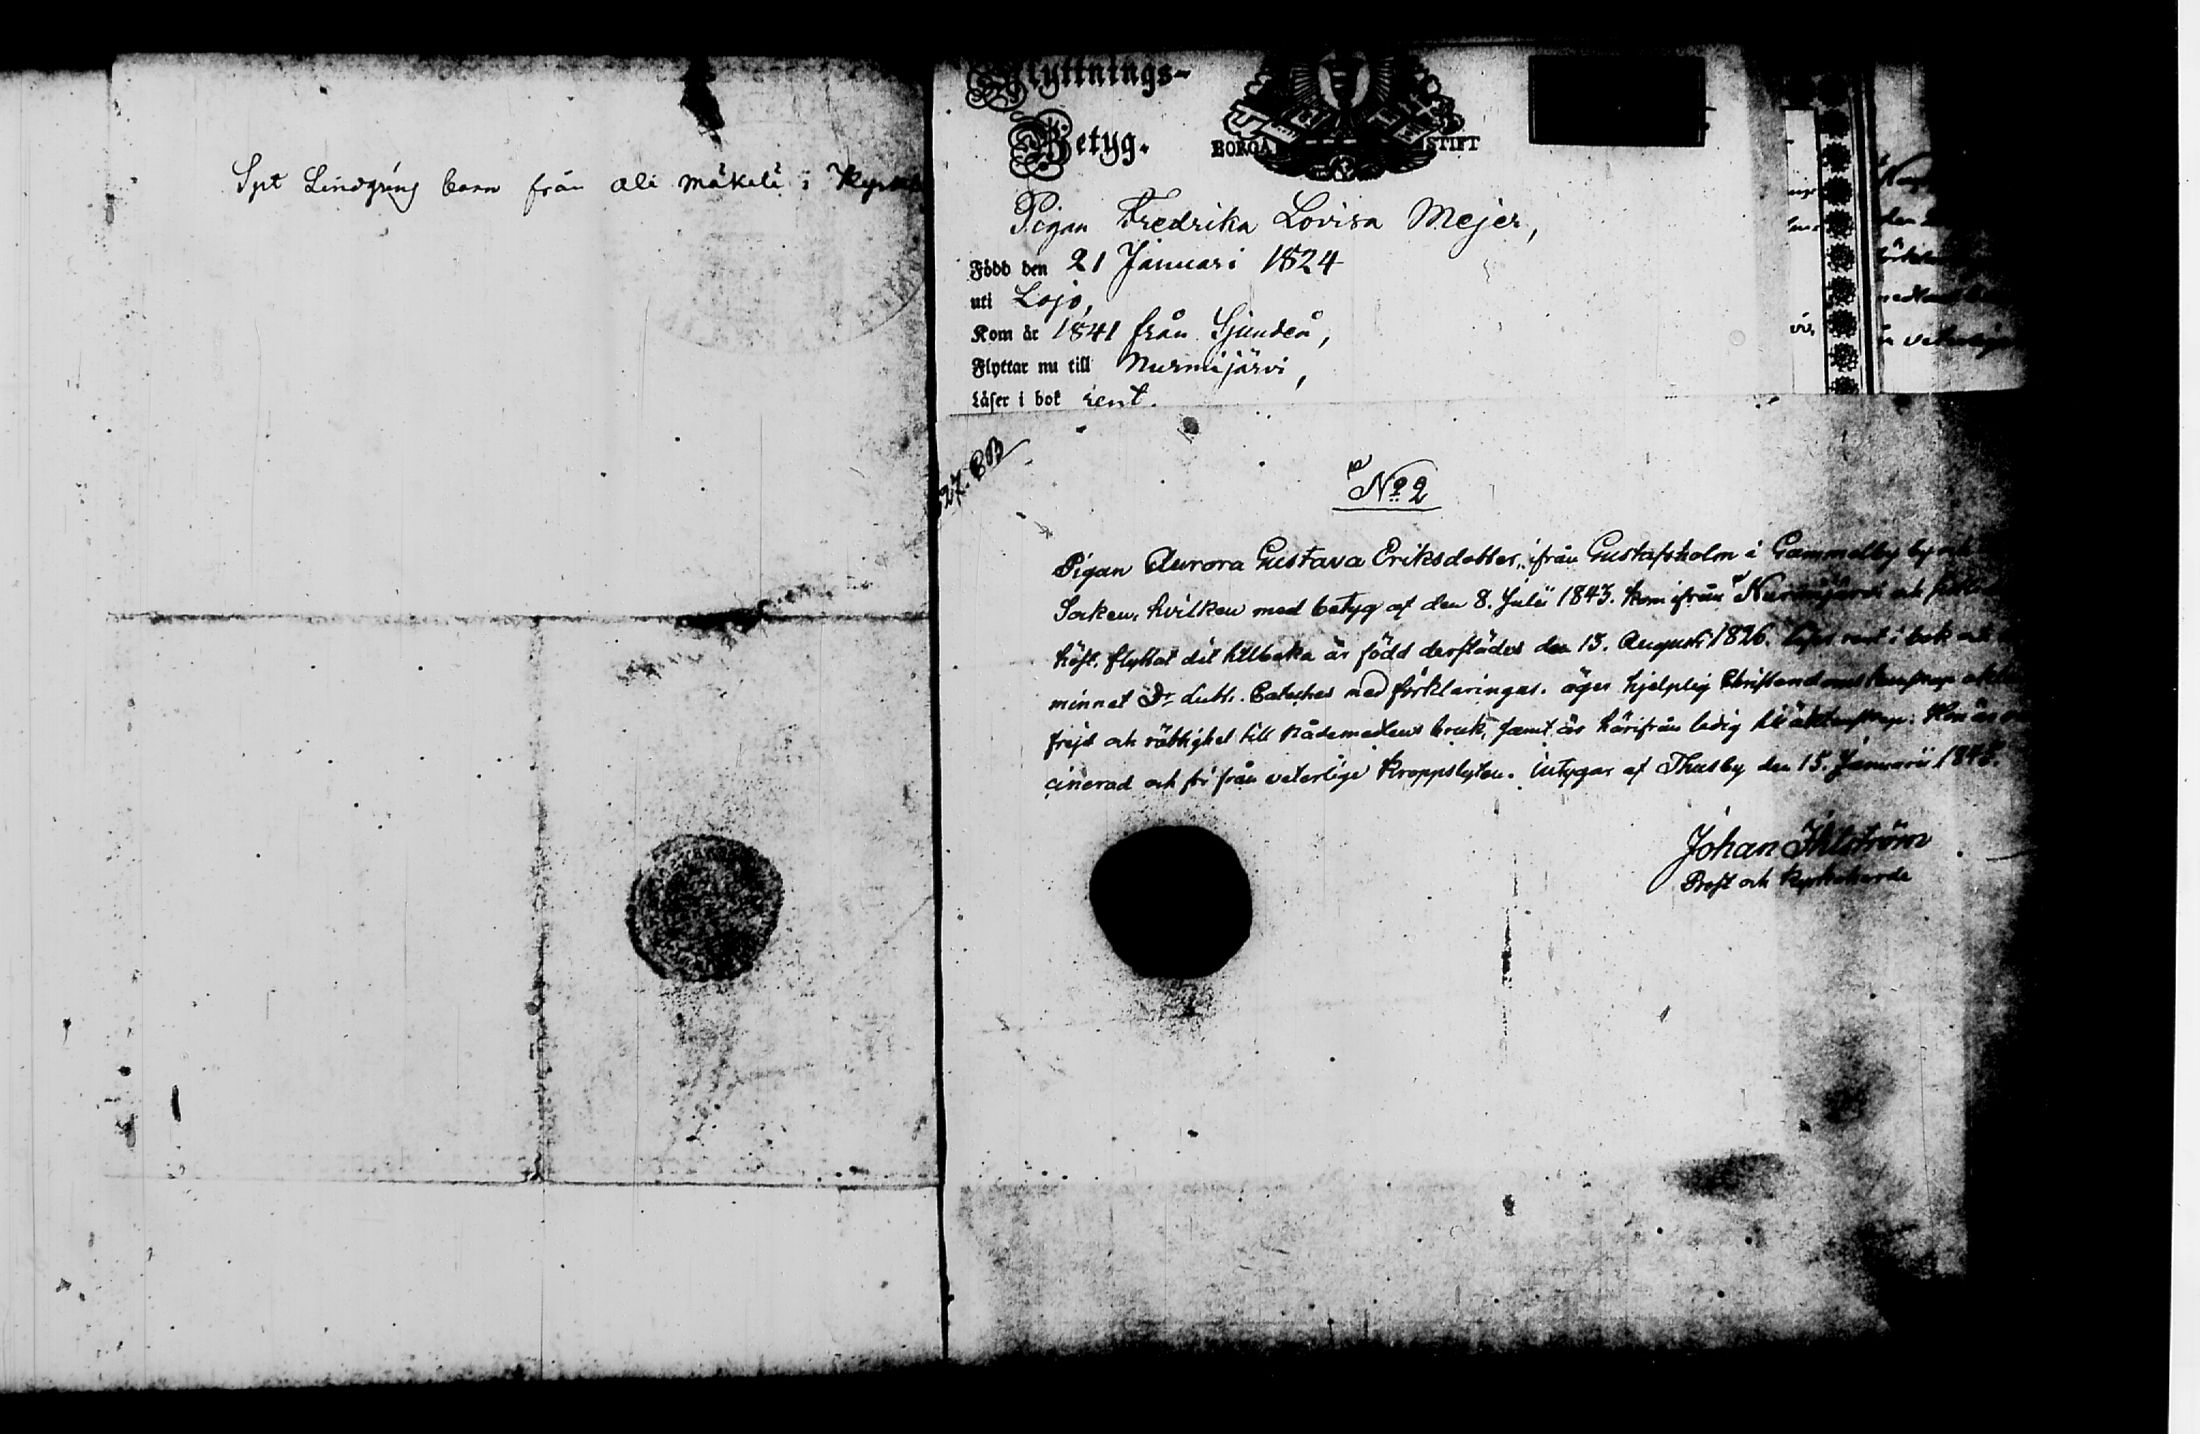 Spt Lindgrens barn från Ali Mäkelä i
Flyttnings-
Betyg.
BORGÅ STIFT
Pigan Fredrika Lovisa Mejer,
Född den 21 Januari 1824
uti Lojo,
Kom år 1841 från Sjundeå,
Flyttar nu till Nurmijärvi,
Läser i bok rent.
No 2
Pigan Aurora Gustava Eriksdotter, ifrån Gustafsholm i Gammelby by och
Socken, hvilken med betyg af den 8. Julii 1843. kom ifrån Nurmijärvi och
höst. flyttat dit tillbaka är född derstädes den 13. Augusti 1826. Läser rent i bok och
minnet Dr Luth. Cateches med förklaringar. äger hjelplig Christendoms kunskap
frejd och rättighet till Nådemedlens bruk, samt är härifrån ledig till äktenskap. Hon är
cinerad och fri från veterlige kroppslyten. intygar af Thusby den 15. Januarii 1845.
Johan Ihlström
Prost och Kyrkoherde